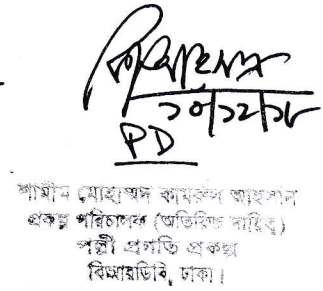 ১০/১২/১৮
PD
শামীম মোহাম্মদ কামরুল আহসান
প্রকল্প পরিচালক (অতিরিক্ত দায়িত্ব)
পল্লী প্রগতি প্রকল্প
বিআরডিবি, ঢাকা।